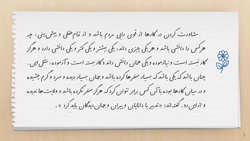 مشاورت کردن در کارها از قوی رایی مردم باشد و از تمام عقلی و پیش بینی، چه
هرکس را دانشی باشد و هر یکی چیزی داند، یکی بیشتر و یکی کمتر و یکی دانشی دارد و هرگز
کار نبسته است و نیازموده و یکی همان دانش داند و کار بسته است و آزموده. مثل این،
چنان باشد که یکی باشد که بسیار سفرها کرده باشد و جهان بسیار دیده و سرد و گرم چشیده
و در میان کارها بوده با آن کس برابر نتوان کرد که هرگز سفر نکرده باشد و ولایت‌ها ندیده
و از این روی، گفته‌اند: «تدبیر با دانایان و پیران و جهان دیدگان باید کرد.»